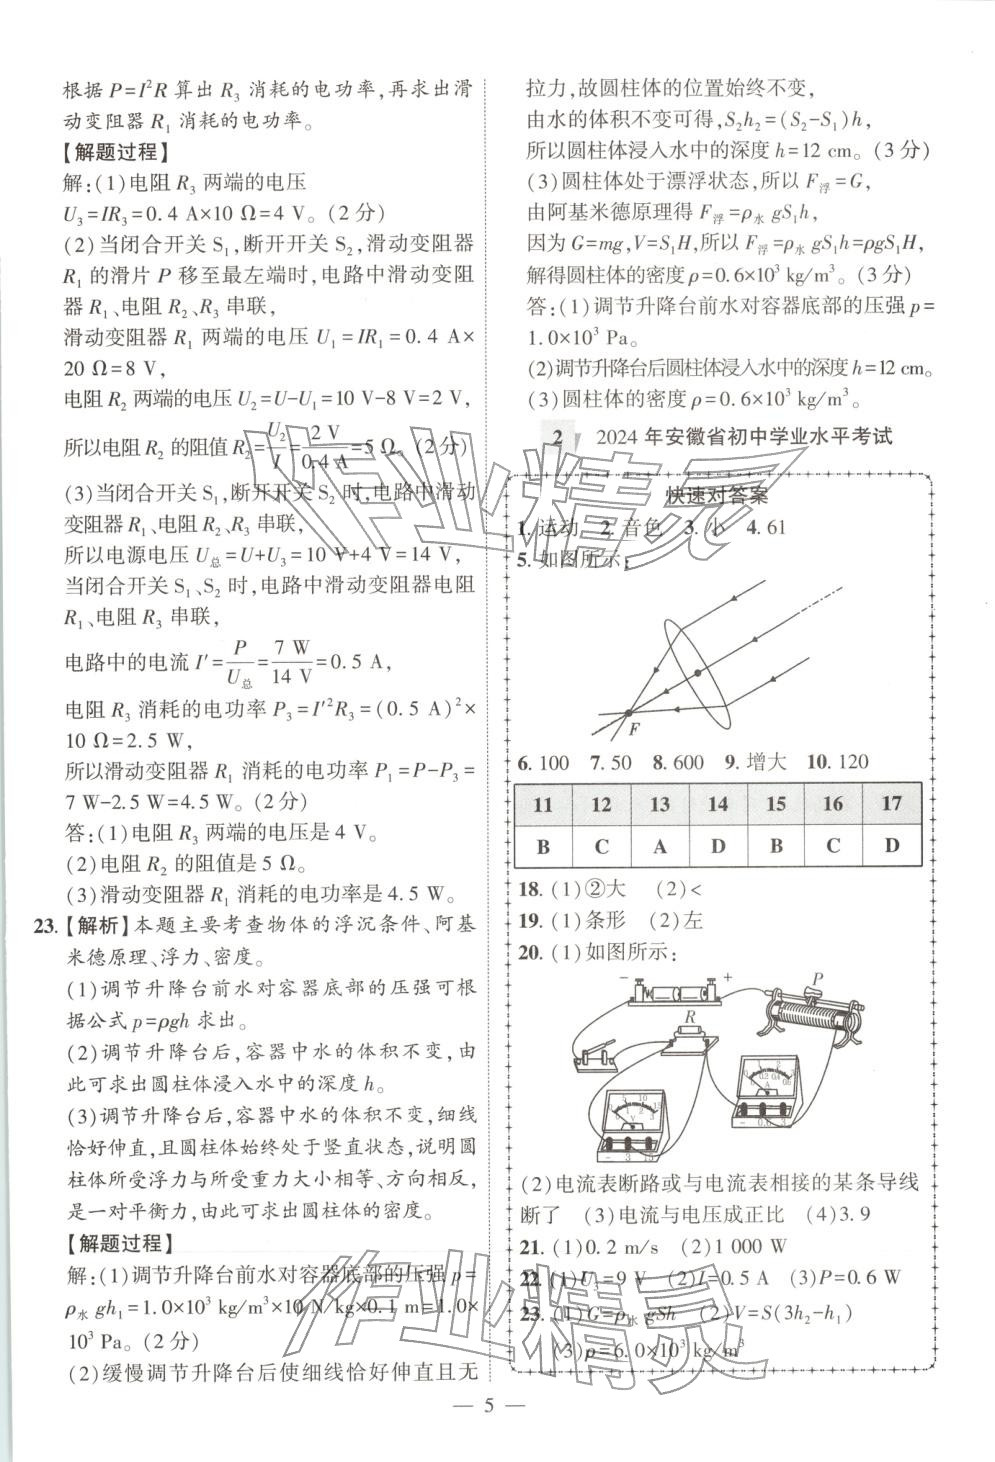 根据 P=I²R 算出 R₃ 消耗的电功率,再求出滑
动变阻器 R₁ 消耗的电功率。
【解题过程】
解:(1)电阻 R₃ 两端的电压
U₃=IR₃=0.4 A×10 Ω=4 V。(2分)
(2)当闭合开关 S₁,断开开关 S₂,滑动变阻器
R₁ 的滑片 P 移至最左端时,电路中滑动变阻
器 R₁、电阻 R₂、R₃ 串联,
滑动变阻器 R₁ 两端的电压 U₁=IR₁=0.4 A×
20 Ω=8 V,
电阻 R₂ 两端的电压 U₂=U-U₁=10 V-8 V=2 V,
所以电阻 R₂ 的阻值 R₂=U₂/I=2 V/0.4 A=5 Ω。(2分)
(3)当闭合开关 S₁,断开开关 S₂ 时,电路中滑动
变阻器 R₁、电阻 R₂、R₃ 串联,
所以电源电压 U总=U+U₃=10 V+4 V=14 V,
当闭合开关 S₁、S₂ 时,电路中滑动变阻器电阻
R₁、电阻 R₃ 串联,
电路中的电流 I′=P/U总=7 W/14 V=0.5 A,
电阻 R₃ 消耗的电功率 P₃=I′²R₃=(0.5 A)²×
10 Ω=2.5 W,
所以滑动变阻器 R₁ 消耗的电功率 P₁=P-P₃=
7 W-2.5 W=4.5 W。(2分)
答:(1)电阻 R₃ 两端的电压是 4 V。
(2)电阻 R₂ 的阻值是 5 Ω。
(3)滑动变阻器 R₁ 消耗的电功率是 4.5 W。
23.【解析】本题主要考查物体的浮沉条件、阿基
米德原理、浮力、密度。
(1)调节升降台前水对容器底部的压强可根
据公式 p=ρgh 求出。
(2)调节升降台后,容器中水的体积不变,由
此可求出圆柱体浸入水中的深度 h。
(3)调节升降台后,容器中水的体积不变,细线
恰好伸直,且圆柱体始终处于竖直状态,说明圆
柱体所受浮力与所受重力大小相等、方向相反,
是一对平衡力,由此可求出圆柱体的密度。
【解题过程】
解:(1)调节升降台前水对容器底部的压强 p=
ρ水 gh₁=1.0×10³ kg/m³×10 N/kg×0.1 m=1.0×
10³ Pa。(2分)
(2)缓慢调节升降台后使细线恰好伸直且无
拉力,故圆柱体的位置始终不变,
由水的体积不变可得,S₂h₂=(S₂-S₁)h,
所以圆柱体浸入水中的深度 h=12 cm。(3分)
(3)圆柱体处于漂浮状态,所以 F浮=G,
由阿基米德原理得 F浮=ρ水 gS₁h,
因为 G=mg,V=S₁H,所以 F浮=ρ水 gS₁h=ρgS₁H,
解得圆柱体的密度 ρ=0.6×10³ kg/m³。(3分)
答:(1)调节升降台前水对容器底部的压强 p=
1.0×10³ Pa。
(2)调节升降台后圆柱体浸入水中的深度 h=12 cm。
(3)圆柱体的密度 ρ=0.6×10³ kg/m³。
2 2024 年安徽省初中学业水平考试
快速对答案
1. 运动 2. 音色 3. 小 4. 61
5. 如图所示:
F
6. 100 7. 50 8. 600 9. 增大 10. 120
11 12 13 14 15 16 17
B C A D B C D
18. (1)②大 (2)<
19. (1)条形 (2)左
20. (1)如图所示:
- +
P
R
(2)电流表断路或与电流表相接的某条导线
断了 (3)电流与电压成正比 (4)3.9
21. (1)0.2 m/s (2)1 000 W
22. (1)U₁=9 V (2)I=0.5 A (3)P=0.6 W
23. (1)G=ρ水 gSh (2)V=S(3h₂-h₁)
(3)ρ=6.0×10³ kg/m³
— 5 —
作业精灵
作业精灵